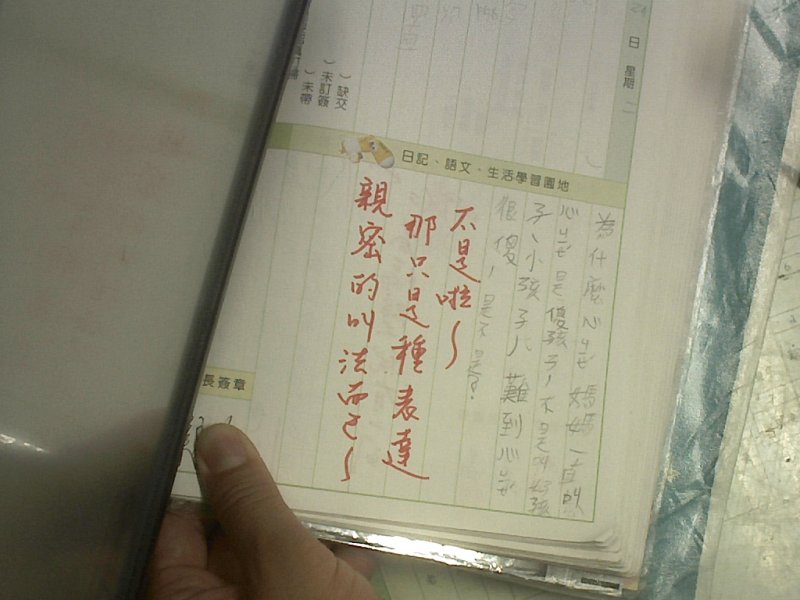 日 星期 二
日記、語文、生活學習園地
為什麼心芷媽媽一直叫
心芷是傻孩子,不是叫好孩
子、小孩子,難到心芷
很傻,是不是?
不是啦~
那只是種表達
親密的叫法而已~
)缺交
)未訂簽
)未帶
長簽章